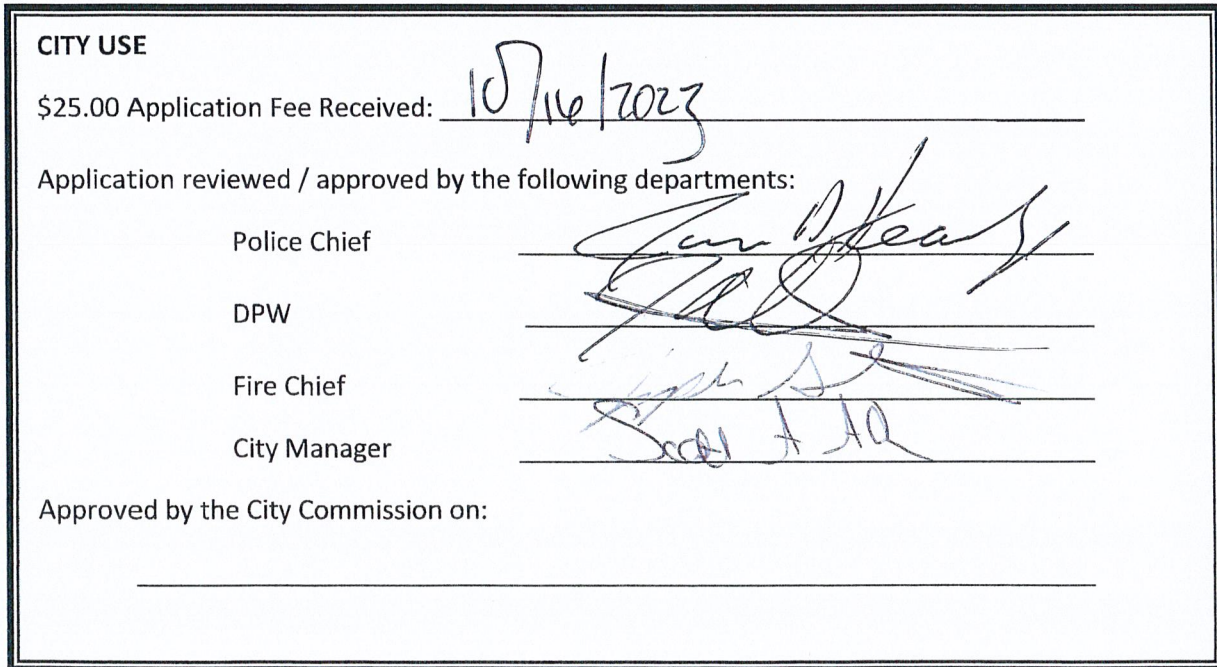 CITY USE
$25.00 Application Fee Received: 10/16/2023
Application reviewed / approved by the following departments:
Police Chief
DPW
Fire Chief
City Manager Scott A
Approved by the City Commission on: